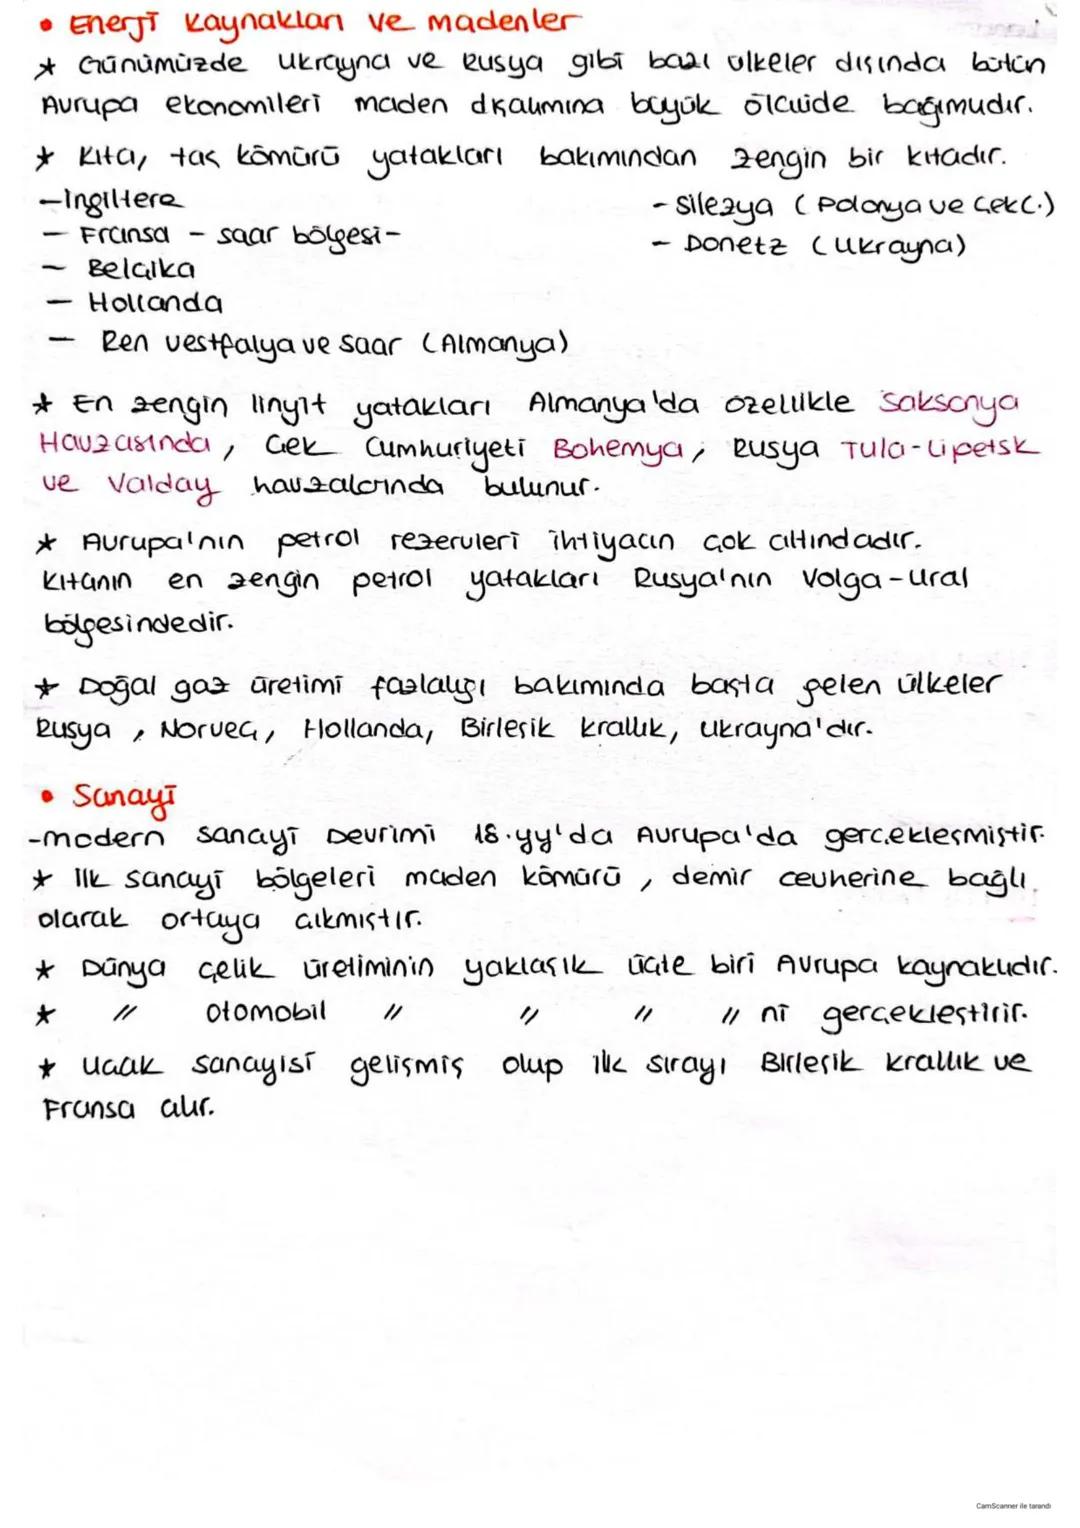 • Enerji Kaynakları ve madenler
* Günümüzde Ukrayna ve Rusya gibi bazı ülkeler dışında bütün
Avrupa ekonomileri maden dışalımına büyük ölçüde bağımlıdır.
* Kıta, taş kömürü yatakları bakımından zengin bir kıtadır.
- İngiltere
- Fransa - saar bölgesi -
- Belçika
- Hollanda
- Ren vestfalya ve saar (Almanya)
- Silezya (Polonya ve Çek C.)
- Donetz (Ukrayna)
* En zengin linyit yatakları Almanya'da özellikle Saksonya
Havzasında, Çek Cumhuriyeti Bohemya, Rusya Tula-Lipetsk
ve Valday havzalarında bulunur.
* Avrupa'nın petrol rezervleri ihtiyacın çok altındadır.
Kıtanın en zengin petrol yatakları Rusya'nın Volga-Ural
bölgesindedir.
* Doğal gaz üretimi fazlalığı bakımında başta gelen ülkeler
Rusya, Norveç, Hollanda, Birleşik krallık, Ukrayna'dır.
• Sanayi
-modern sanayi Devrimi 18.yy'da Avrupa'da gerçekleşmiştir.
* İlk sanayi bölgeleri maden kömürü, demir cevherine bağlı
olarak ortaya çıkmıştır.
* Dünya çelik üretiminin yaklaşık üçte biri Avrupa kaynaklıdır.
* " otomobil " " " " ni gerçekleştirir.
* Uçak sanayisi gelişmiş olup ilk sırayı Birleşik krallık ve
Fransa alır.
CamScanner ile tarandı